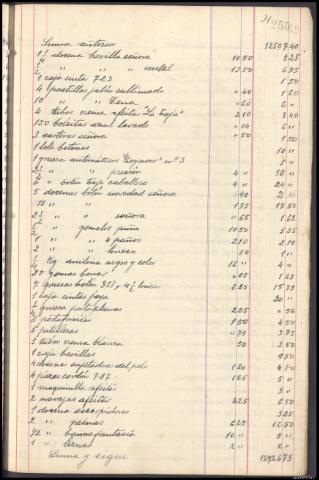 Suma anterior 1250740
1/2 docena hevilla señora 1050 525
1/2 " " metal 1350 675
1 caja cinta 723 150
4 pastillas jabón sublimado "40 160
10 " " Tena "60 6"
4 tubos crema afeitar "La Toja" 210 840
150 bolsitas azul lavado "04 6"
3 carteras señora "50 150
1 lote botones 10"
1 gruesa automáticos nº 3 5"
" " presión 4" 10"
6 " botón traje caballero 4" 24"
5 docenas botón novedad señora "40 2"
10 " " " 175 1750
2 1/2 " " señora "65 162
1/2 " gemelos puño 1050 525
1 " " 4 paños 210 210
2 " " hueso 50 1"
1/4 Kg anilina negro y color 16" 4"
25 gomas borrar "05 125
7 gruesas botón 225 1575
1 caja cintas faya 20"
1/4 gruesa 225 "56
3 portafirmas 150 450
5 petileras "75 375
5 tubos crema blanca 50 250
1 caja hevillas 950
4 docenas sujetadores del pelo 120 480
4 piezas cordón 707 125 5"
1 maquinilla afeitar 3"
2 navajas afeitar 325 650
1 docena escarpidores 325
2 " peinas 625 1250
1/2 " barras fantasía 10" 5"
1 " 2" 2"
Suma y sigue 1272673